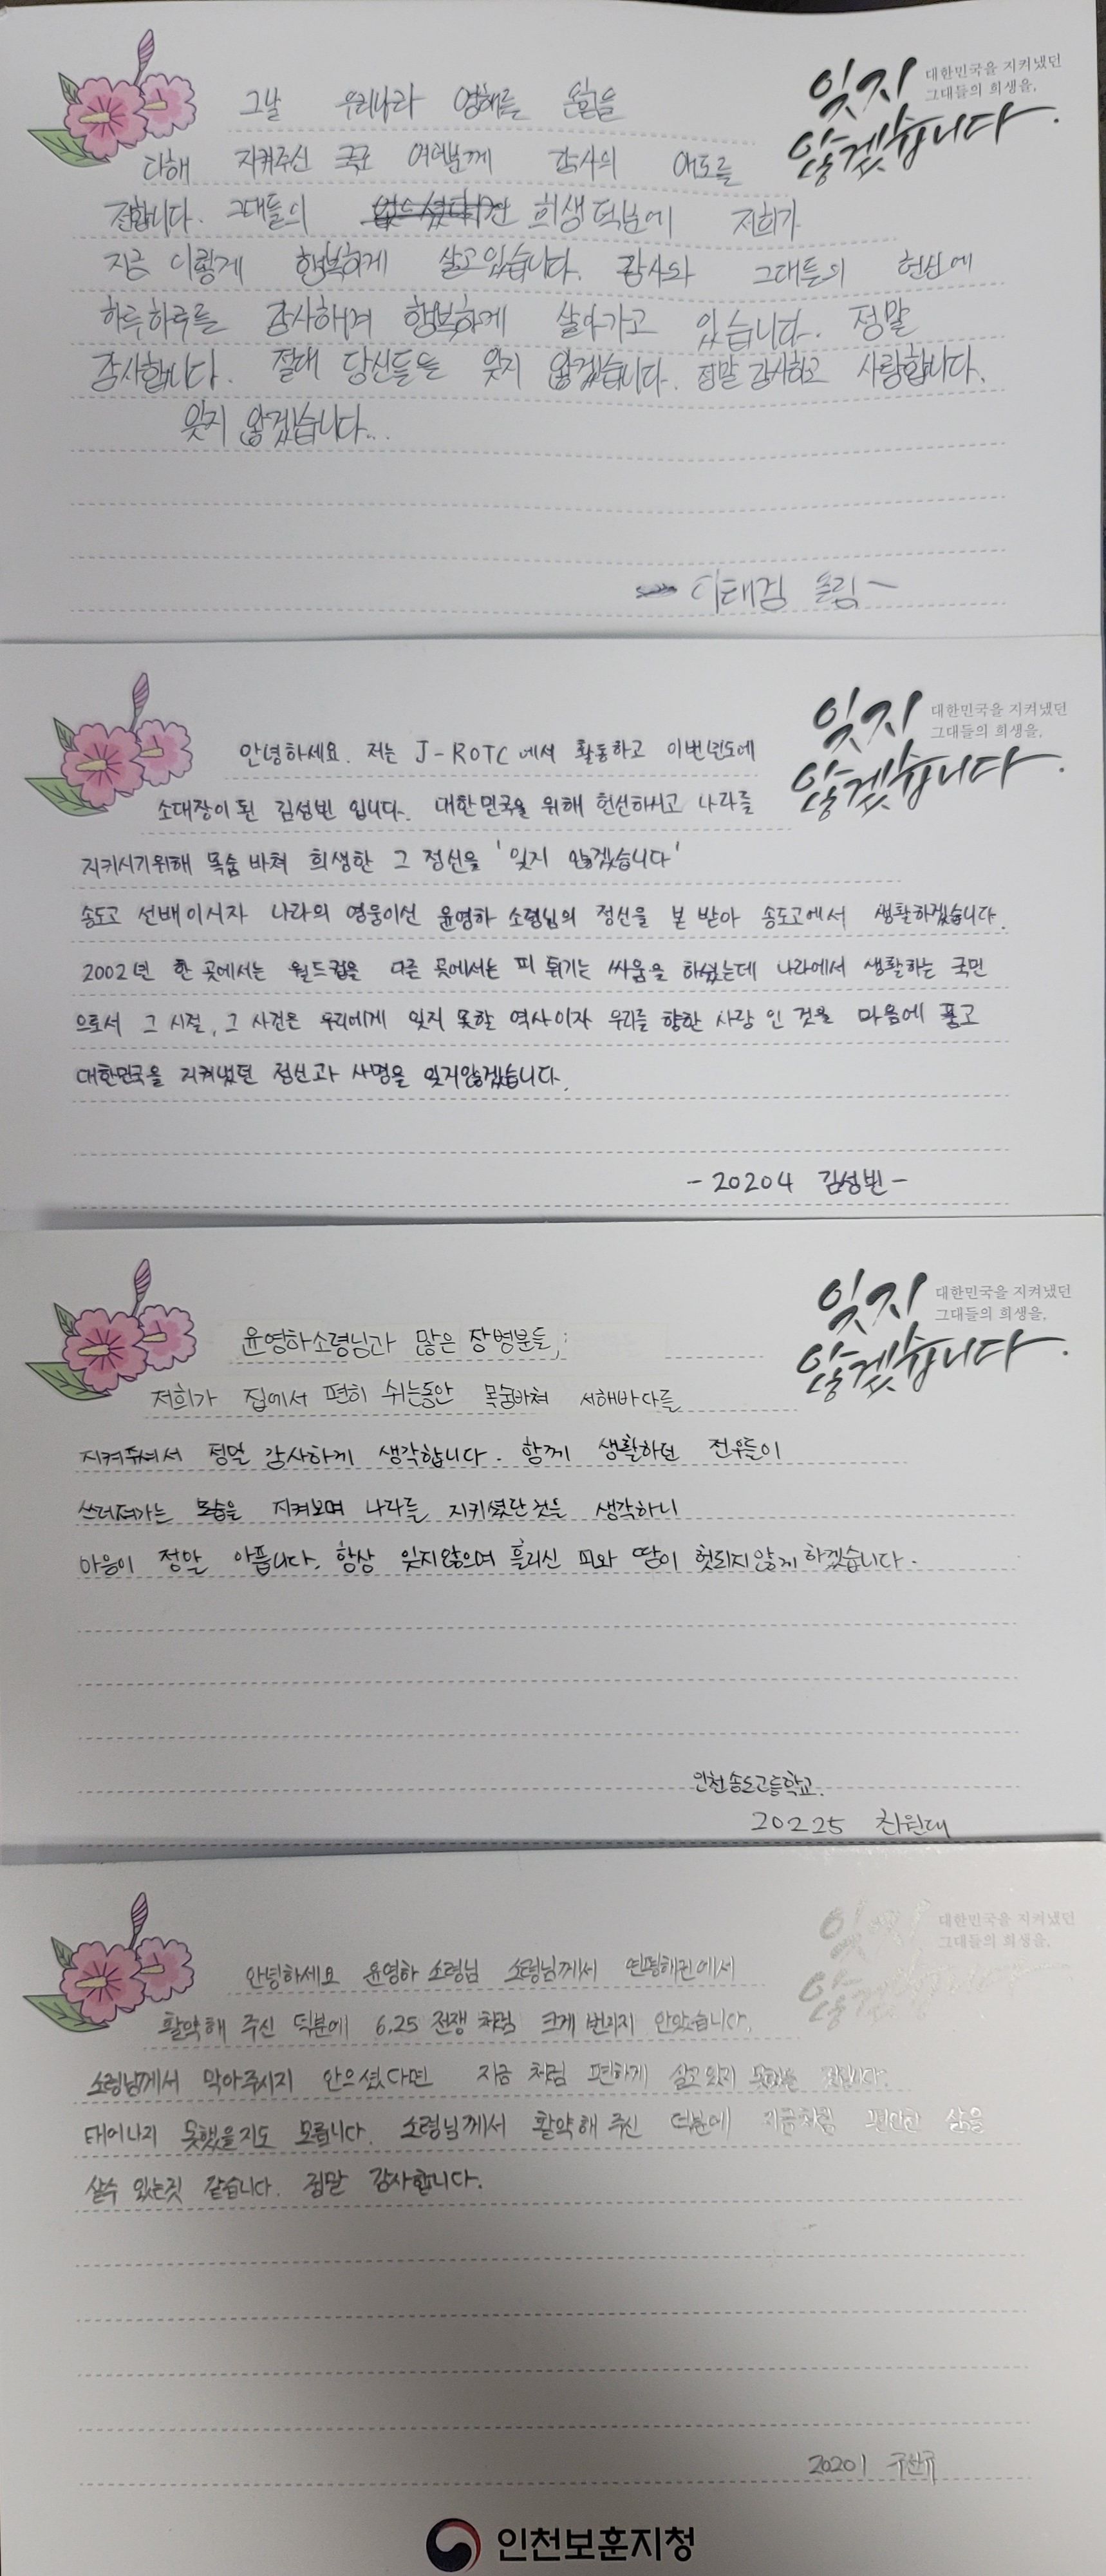 대한민국을 지켜냈던
그대들의 희생을,
잊지
않겠습니다.
그날 우리나라 영해를 온힘을
다해 지켜주신 국군 여러분께 감사의 애도를
전합니다. 그대들의 희생 덕분에 저희가
지금 이렇게 행복하게 살고있습니다. 감사와 그대들의 헌신에
하루하루를 감사하며 행복하게 살아가고 있습니다. 정말
감사합니다. 절대 당신들을 잊지 않겠습니다. 정말 감사하고 사랑합니다.
잊지 않겠습니다...
올림 -
대한민국을 지켜냈던
그대들의 희생을,
잊지
않겠습니다.
안녕하세요. 저는 J-ROTC에서 활동하고 이번년도에
소대장이 된 김성빈 입니다. 대한민국을 위해 헌신하시고 나라를
지키시기위해 목숨 바쳐 희생한 그 정신을 '잊지 않겠습니다'
송도고 선배이시자 나라의 영웅이신 윤영하 소령님의 정신을 본 받아 송도고에서 생활하겠습니다.
2002년 한 곳에서는 월드컵을 다른 곳에서는 피 튀기는 싸움을 하셨는데 나라에서 생활하는 국민
으로서 그 시절, 그 사건은 우리에게 잊지 못할 역사이자 우리를 향한 사랑 인 것을 마음에 품고
대한민국을 지켜냈던 정신과 사명을 잊지않겠습니다.
- 20204 김성빈 -
대한민국을 지켜냈던
그대들의 희생을,
잊지
않겠습니다.
윤영하소령님과 많은 장병분들;
저희가 집에서 편히 쉬는동안 목숨바쳐 서해바다를
지켜주셔서 정말 감사하게 생각합니다. 함께 생활하던 전우들이
쓰러져가는 모습을 지켜보며 나라를 지키셨단것을 생각하니
마음이 정말 아픕니다. 항상 잊지않으며 흘리신 피와 땀이 헛되지않게 하겠습니다.
인천송도고등학교.
20225 최원대
대한민국을 지켜냈던
그대들의 희생을,
잊지
않겠습니다.
안녕하세요 윤영하 소령님 소령님께서 연평해전에서
활약해 주신 덕분에 6.25 전쟁 처럼 크게 번지지 안았습니다.
소령님께서 막아주시지 안으셨다면 지금 처럼 편하게 살고있지
태어나지 못했을지도 모릅니다. 소령님께서 활약해 주신 덕분에 지금처럼 편안한 삶을
살수 있는것 같습니다. 정말 감사합니다.
20201
인천보훈지청